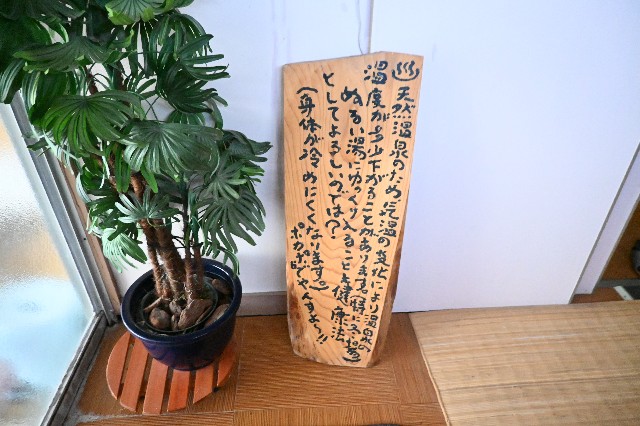 ♨天然温泉のため気温の変化により温泉の
温度が多少下がることがあります。(特に冬場)
ぬるい湯にゆっくり入ることも健康法
としてよろしいのでは?
(身体が冷めにくくなります。)
ポカポカでやんすよ〜!!